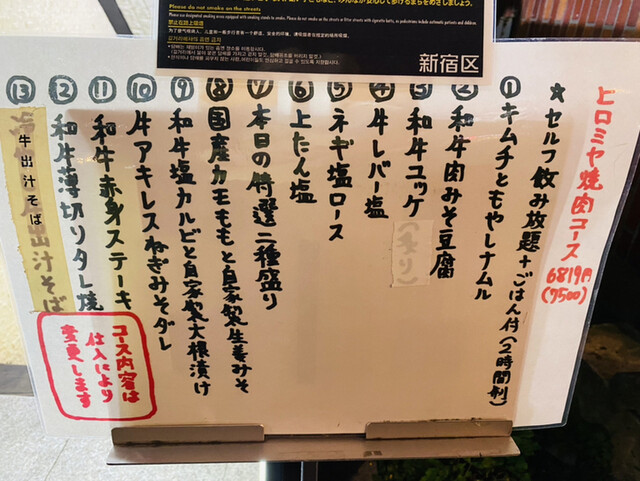 Please do not smoke on the streets
新宿区
ヒロミヤ焼肉コース
6819円
(7500)
★セルフ飲み放題+ごはん付(2時間制)
①キムチともやしナムル
②和牛肉みそ豆腐
③和牛ユッケ(炙り)
④牛レバー塩
⑤ネギ塩ロース
⑥上たん塩
⑦本日の特選二種盛り
⑧国産カモももと自家製生姜みそ
⑨和牛塩カルビと自家製大根漬け
⑩牛アキレスねぎみそダレ
⑪和牛赤身ステーキ
⑫和牛薄切りタレ焼
⑬牛出汁そば
コース内容は
仕入により
変更します